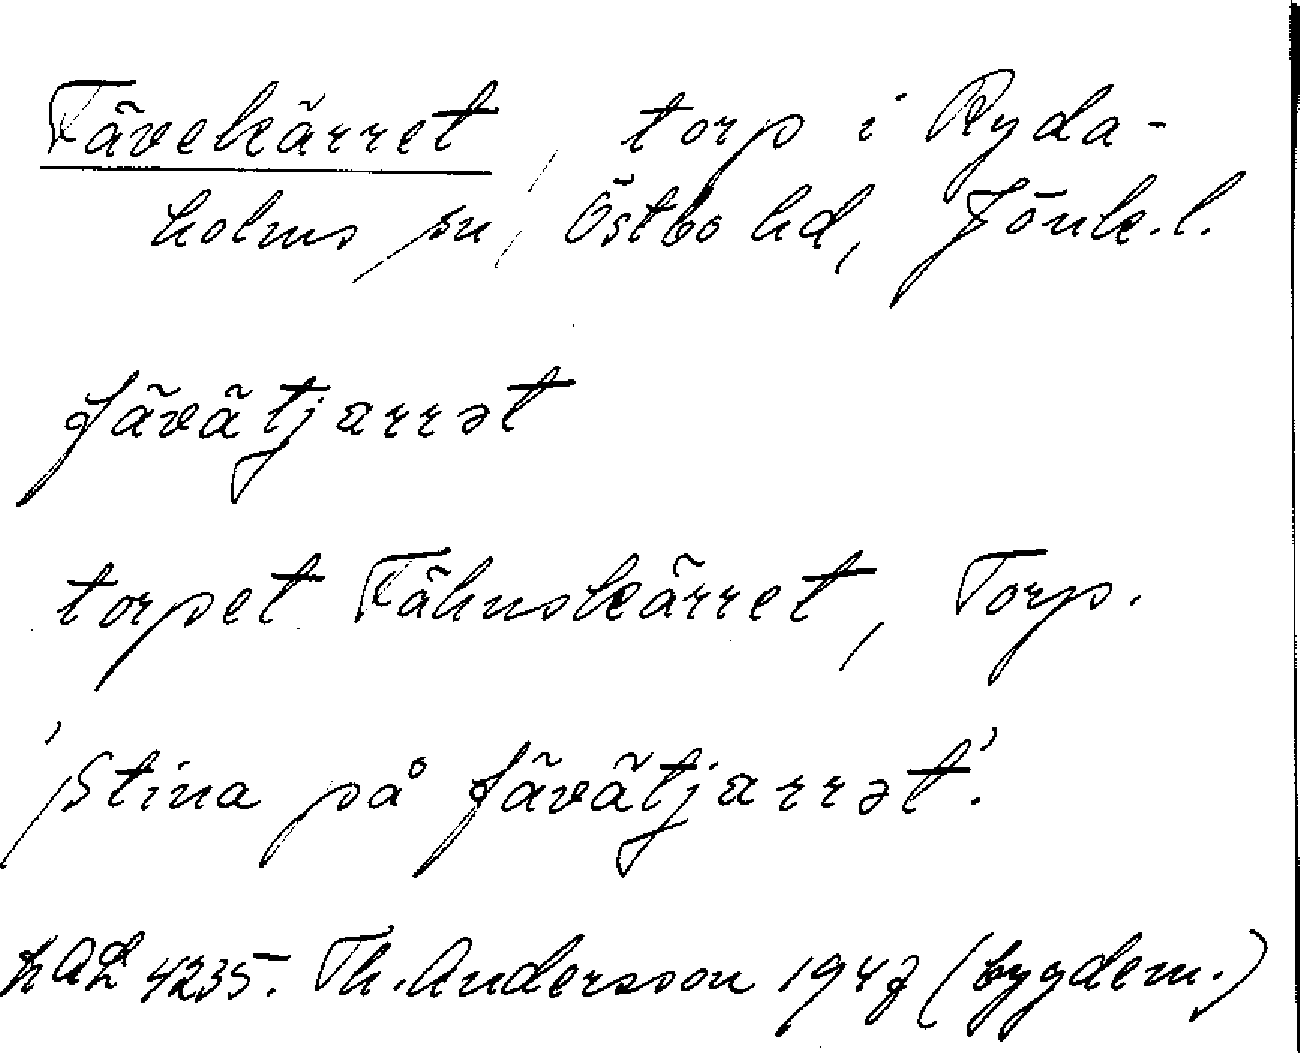 Fävekärret, torp i Ryda-
holms sn, Östbo hd, Jönk.l.
fävätjarrət
torpet Fähuskärret, Torp.
'Stina på fävätjarrət'.
LAL 4235. Th. Andersson 1947 (bygdem.)